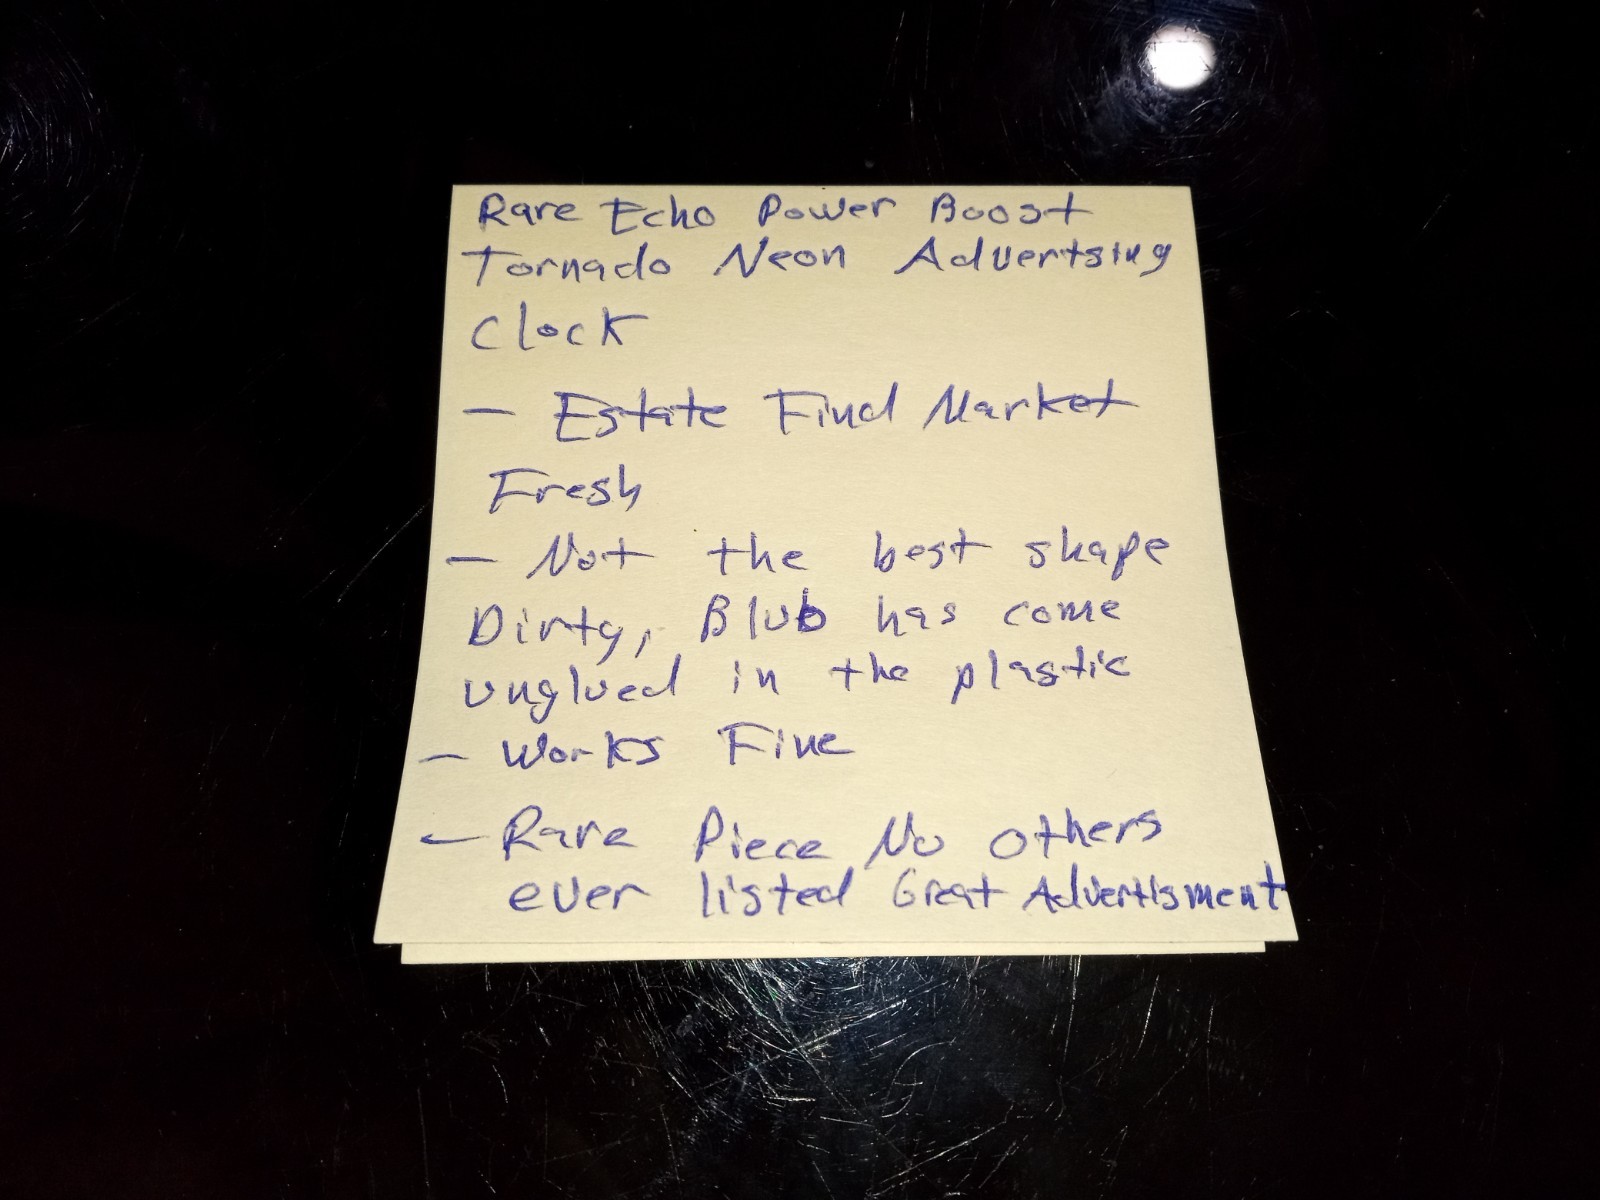 Rare Echo Power Boost
Tornado Neon Advertsing
Clock
- Estate Find Market
Fresh
- Not the best shape
Dirty, Blub has come
unglued in the plastic
- Works Fine
- Rare Piece No others
ever listed Great Advertisment